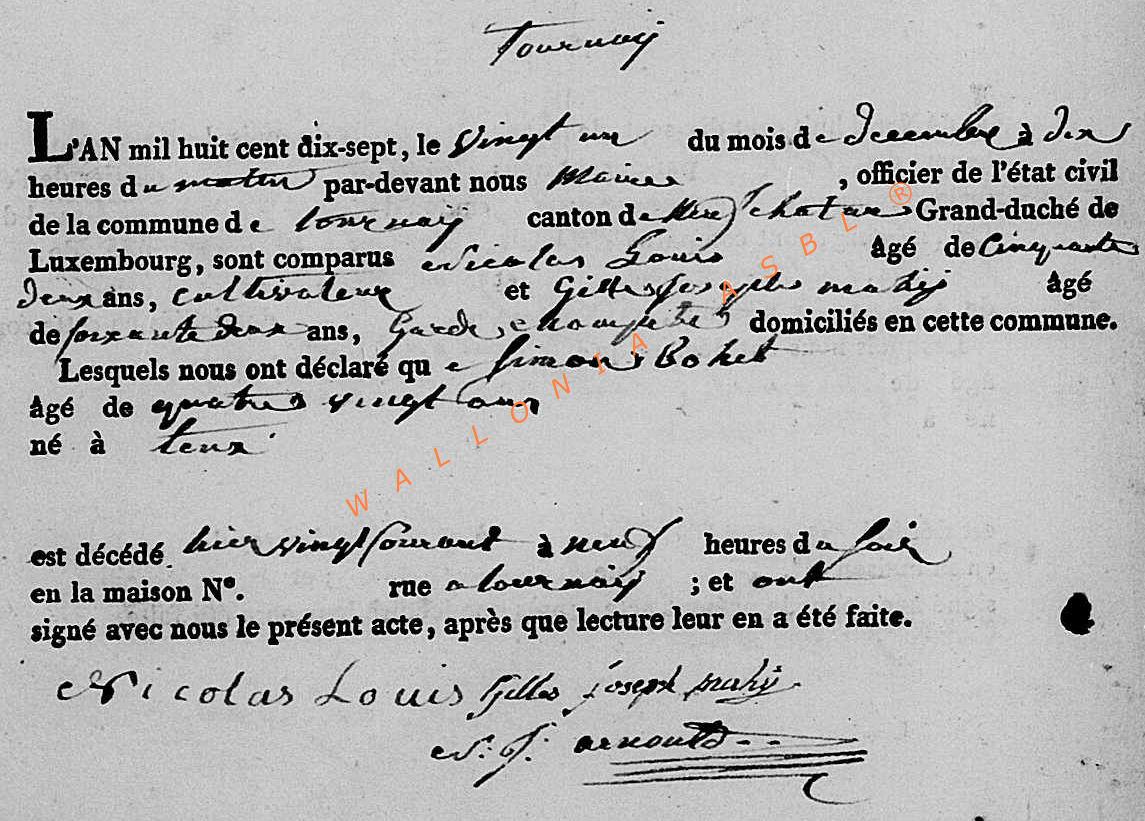 Tournay
L'AN mil huit cent dix-sept, le vingt un du mois de decembre à dix
heures du matin par-devant nous maire , officier de l'état civil
de la commune de tournay canton de Neufchateau Grand-duché de
Luxembourg, sont comparus Nicolas Louis âgé de Cinquante
deux ans, Cultivateur et Gilles joseph mahy âgé
de soixante deux ans, Garde champetre domiciliés en cette commune.
Lesquels nous ont déclaré que Simon Bohet
âgé de quatre vingt ans
né à
est décédé hier vingt courant à neuf heures du soir
en la maison N°. rue a tournay ; et ont
signé avec nous le présent acte, après que lecture leur en a été faite.
Nicolas Louis Gilles joseph mahy
N. J. arnould
WALLONIA ASBL ®